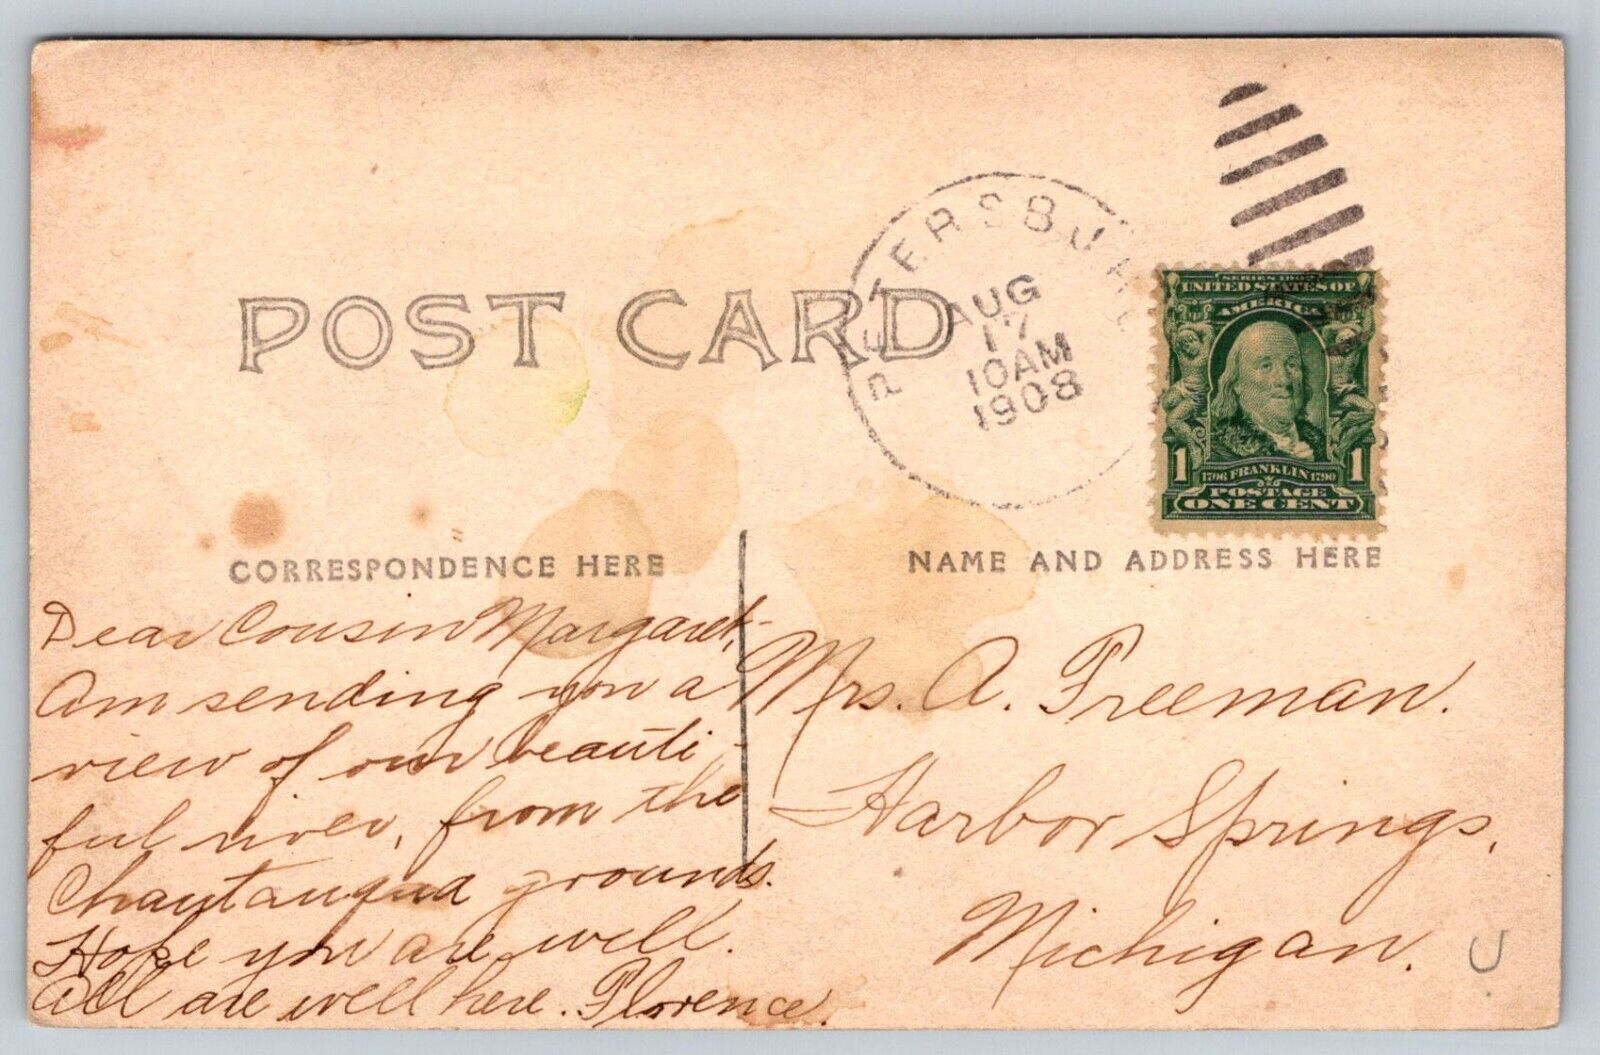 POST CARD
PETERSBURG
AUG
17
10AM
1908
SERIES 1902
UNITED STATES OF
AMERICA
1 1706 FRANKLIN 1790 1
POSTAGE
ONE CENT
CORRESPONDENCE HERE
NAME AND ADDRESS HERE
Dear Cousin Margaret,-
Am sending you a
view of our beauti-
ful river, from the
Chautauqua grounds.
Hope you are well.
All are well here. Florence.
Mrs. A. Freeman.
Harbor Springs,
Michigan.
U